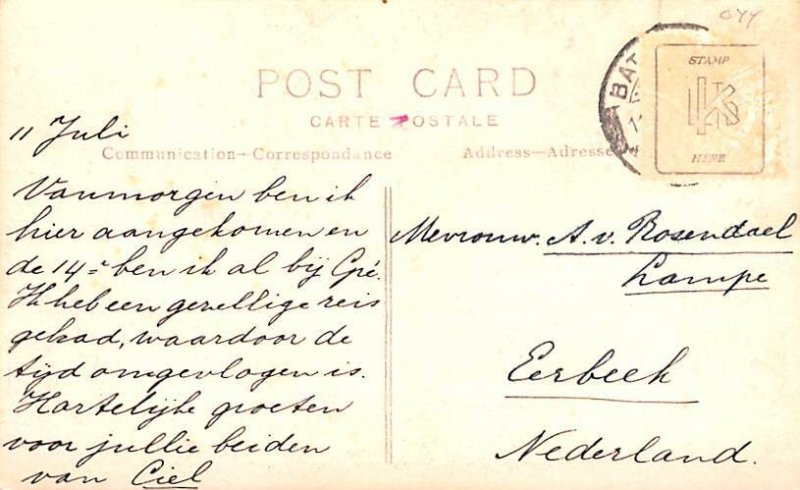 OYY
POST CARD
CARTE POSTALE
Communication—Correspondance
Address—Adresse
STAMP
HERE
BAT
11 Juli
Vanmorgen ben ik
hier aangekomen en
de 14e ben ik al bij Gré.
Ik heb een gezellige reis
gehad, waardoor de
tijd omgevlogen is.
Hartelijke groeten
voor jullie beiden
van Ciel
Mevrouw. A. v. Rosendael
Lampe
Eerbeek
Nederland.